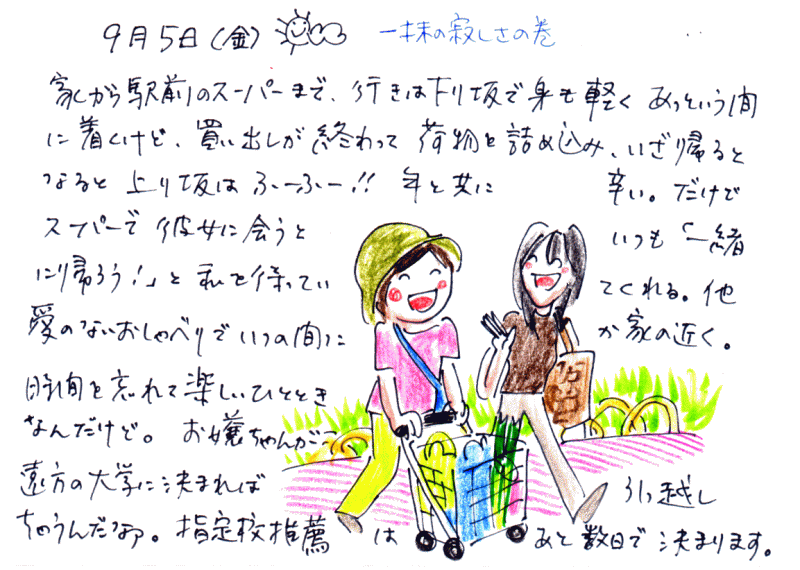 9月5日(金) 一抹の寂しさの巻
家から駅前のスーパーまで、行きは下り坂で身も軽くあっという間
に着くけど、買い出しが終わって荷物を詰め込み、いざ帰ると
なると上り坂はふーふー!! 年と共に 辛い。だけど
スーパーで彼女に会うと いつも「一緒
に帰ろう!」と私を待ってい てくれる。他
愛のないおしゃべりでいつの間に か家の近く。
時間を忘れて楽しいひととき
なんだけど。お嬢ちゃんが
遠方の大学に決まれば 引っ越し
ちゃうんだなァ。指定校推薦は あと数日で決まります。